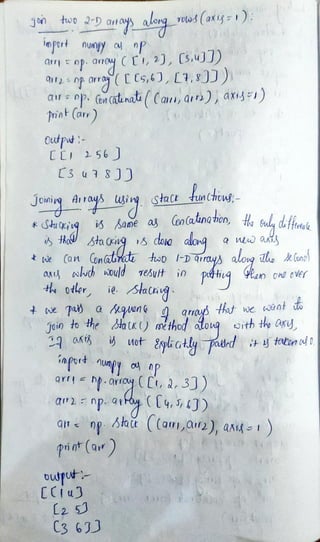 Join two 2-D arrays along rows (axis=1):
import numpy as np
arr1 = np.array ( [ [1, 2], [3,4] ] )
arr2 = np.array ( [ [5,6], [7,8] ] )
arr = np. Concatenate ( (arr1, arr2), axis=1)
print (arr)
output :-
[ [ 1 2 5 6 ]
[ 3 4 7 8 ] ]
Joining Arrays using stack functions:-
* Stacking is same as Concatenation, the only difference
is that stacking is done along a new axis
* we can Concatenate two 1-D arrays along the second
axis which would result in putting them one over
the other, ie. Stacking.
* we pass a sequence of arrays that we want to
join to the stack() method along with the axis,
if axis is not explicitly passed it is taken as 0.
import numpy as np
arr1 = np.array ( [1, 2, 3] )
arr2 = np.array ( [4, 5, 6] )
arr = np. stack ( (arr1, arr2), axis = 1 )
print (arr)
output :-
[ [ 1 4 ]
[ 2 5 ]
[ 3 6 ] ]